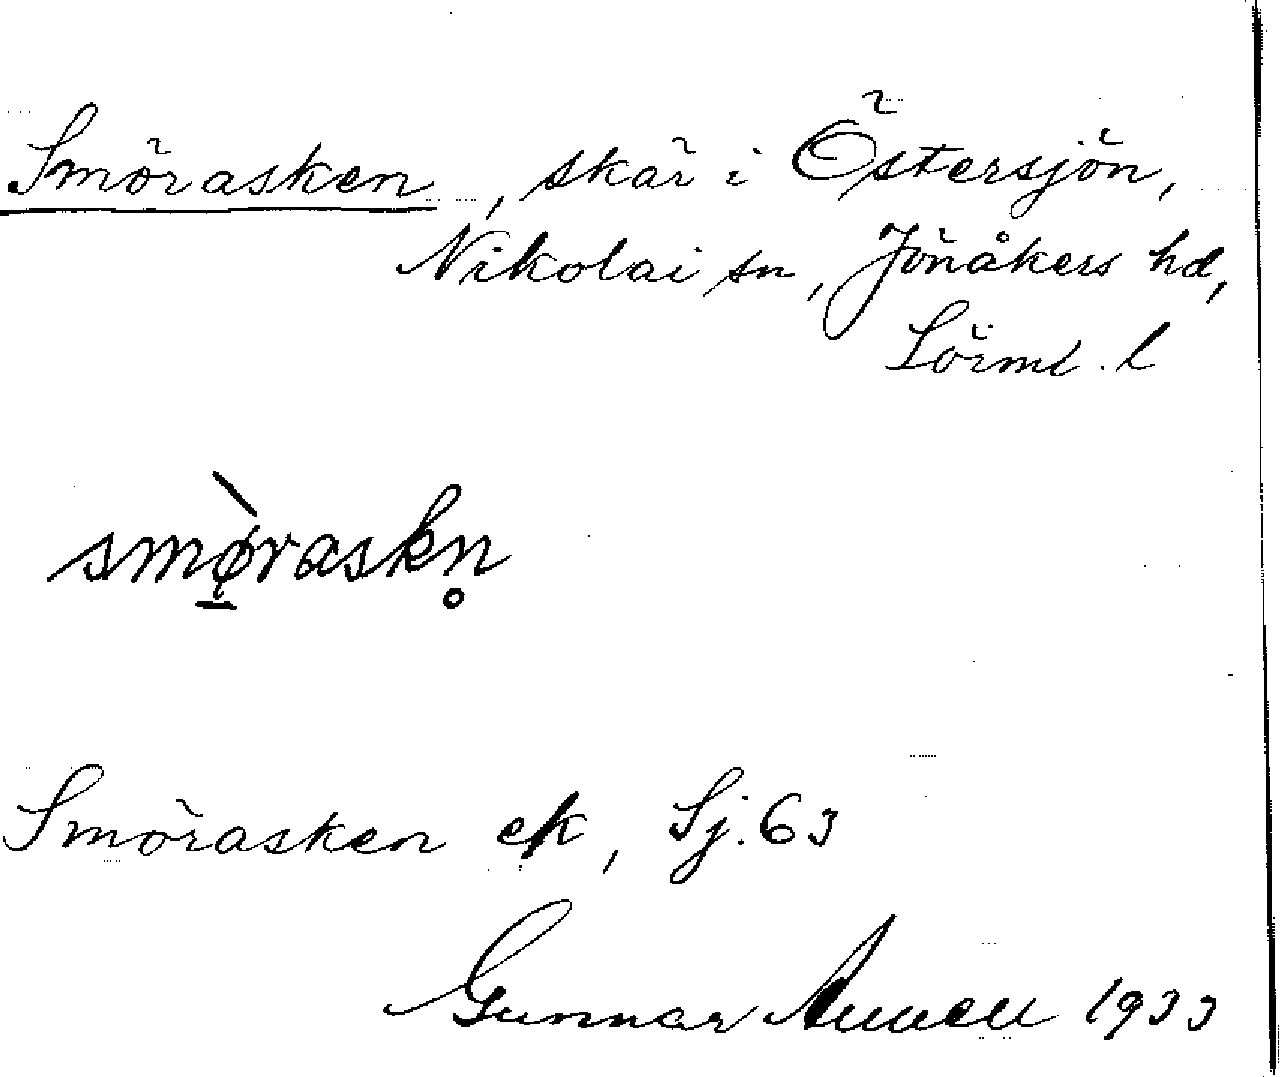 Smörasken, skär i Östersjön,
Nikolai sn, Jönåkers hd,
Sörml. l
smø̱̀raskn̥
Smörasken ek, Sj. 63
Gunnar 1933